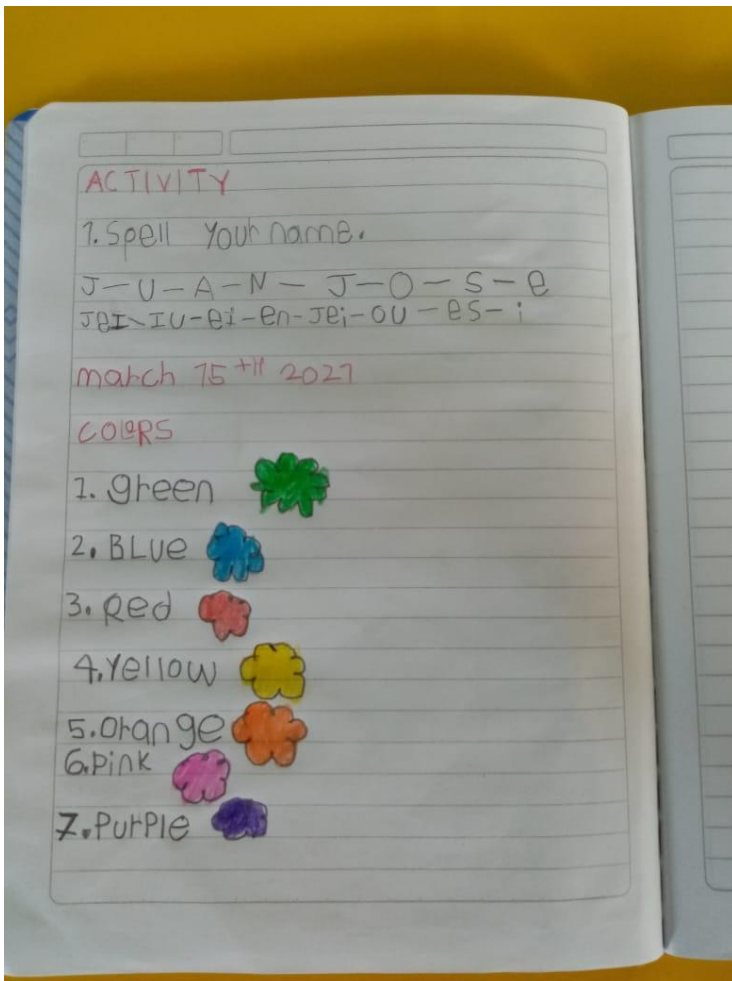 ACTIVITY
1. Spell your name.
J-U-A-N- J-O-S-e
JeI-IU-ei-en-Jei-OU-es-i
march 15TH 2021
COLORS
1. green
2. BLUe
3. Red
4. Yellow
5. Orange
6. pink
7. PurPle